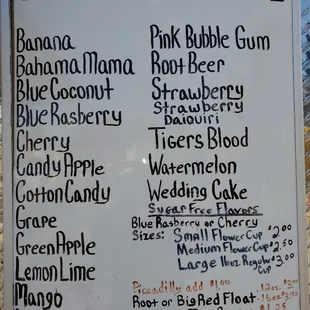 Banana
Bahama Mama
Blue Coconut
Blue Rasberry
Cherry
Candy Apple
Cotton Candy
Grape
Green Apple
Lemon Lime
Mango
Pink Bubble Gum
Root Beer
Strawberry
Strawberry
Daiouiri
Tigers Blood
Watermelon
Wedding Cake
Sugar Free Flavors
Blue Rasberry or Cherry
Sizes: Small Flower Cup $2.00
Medium Flower Cup $2.50
Large 16oz Regular Cup $2.00
Piccadilly add $1.00
Root or Big Red Float 12oz 16oz